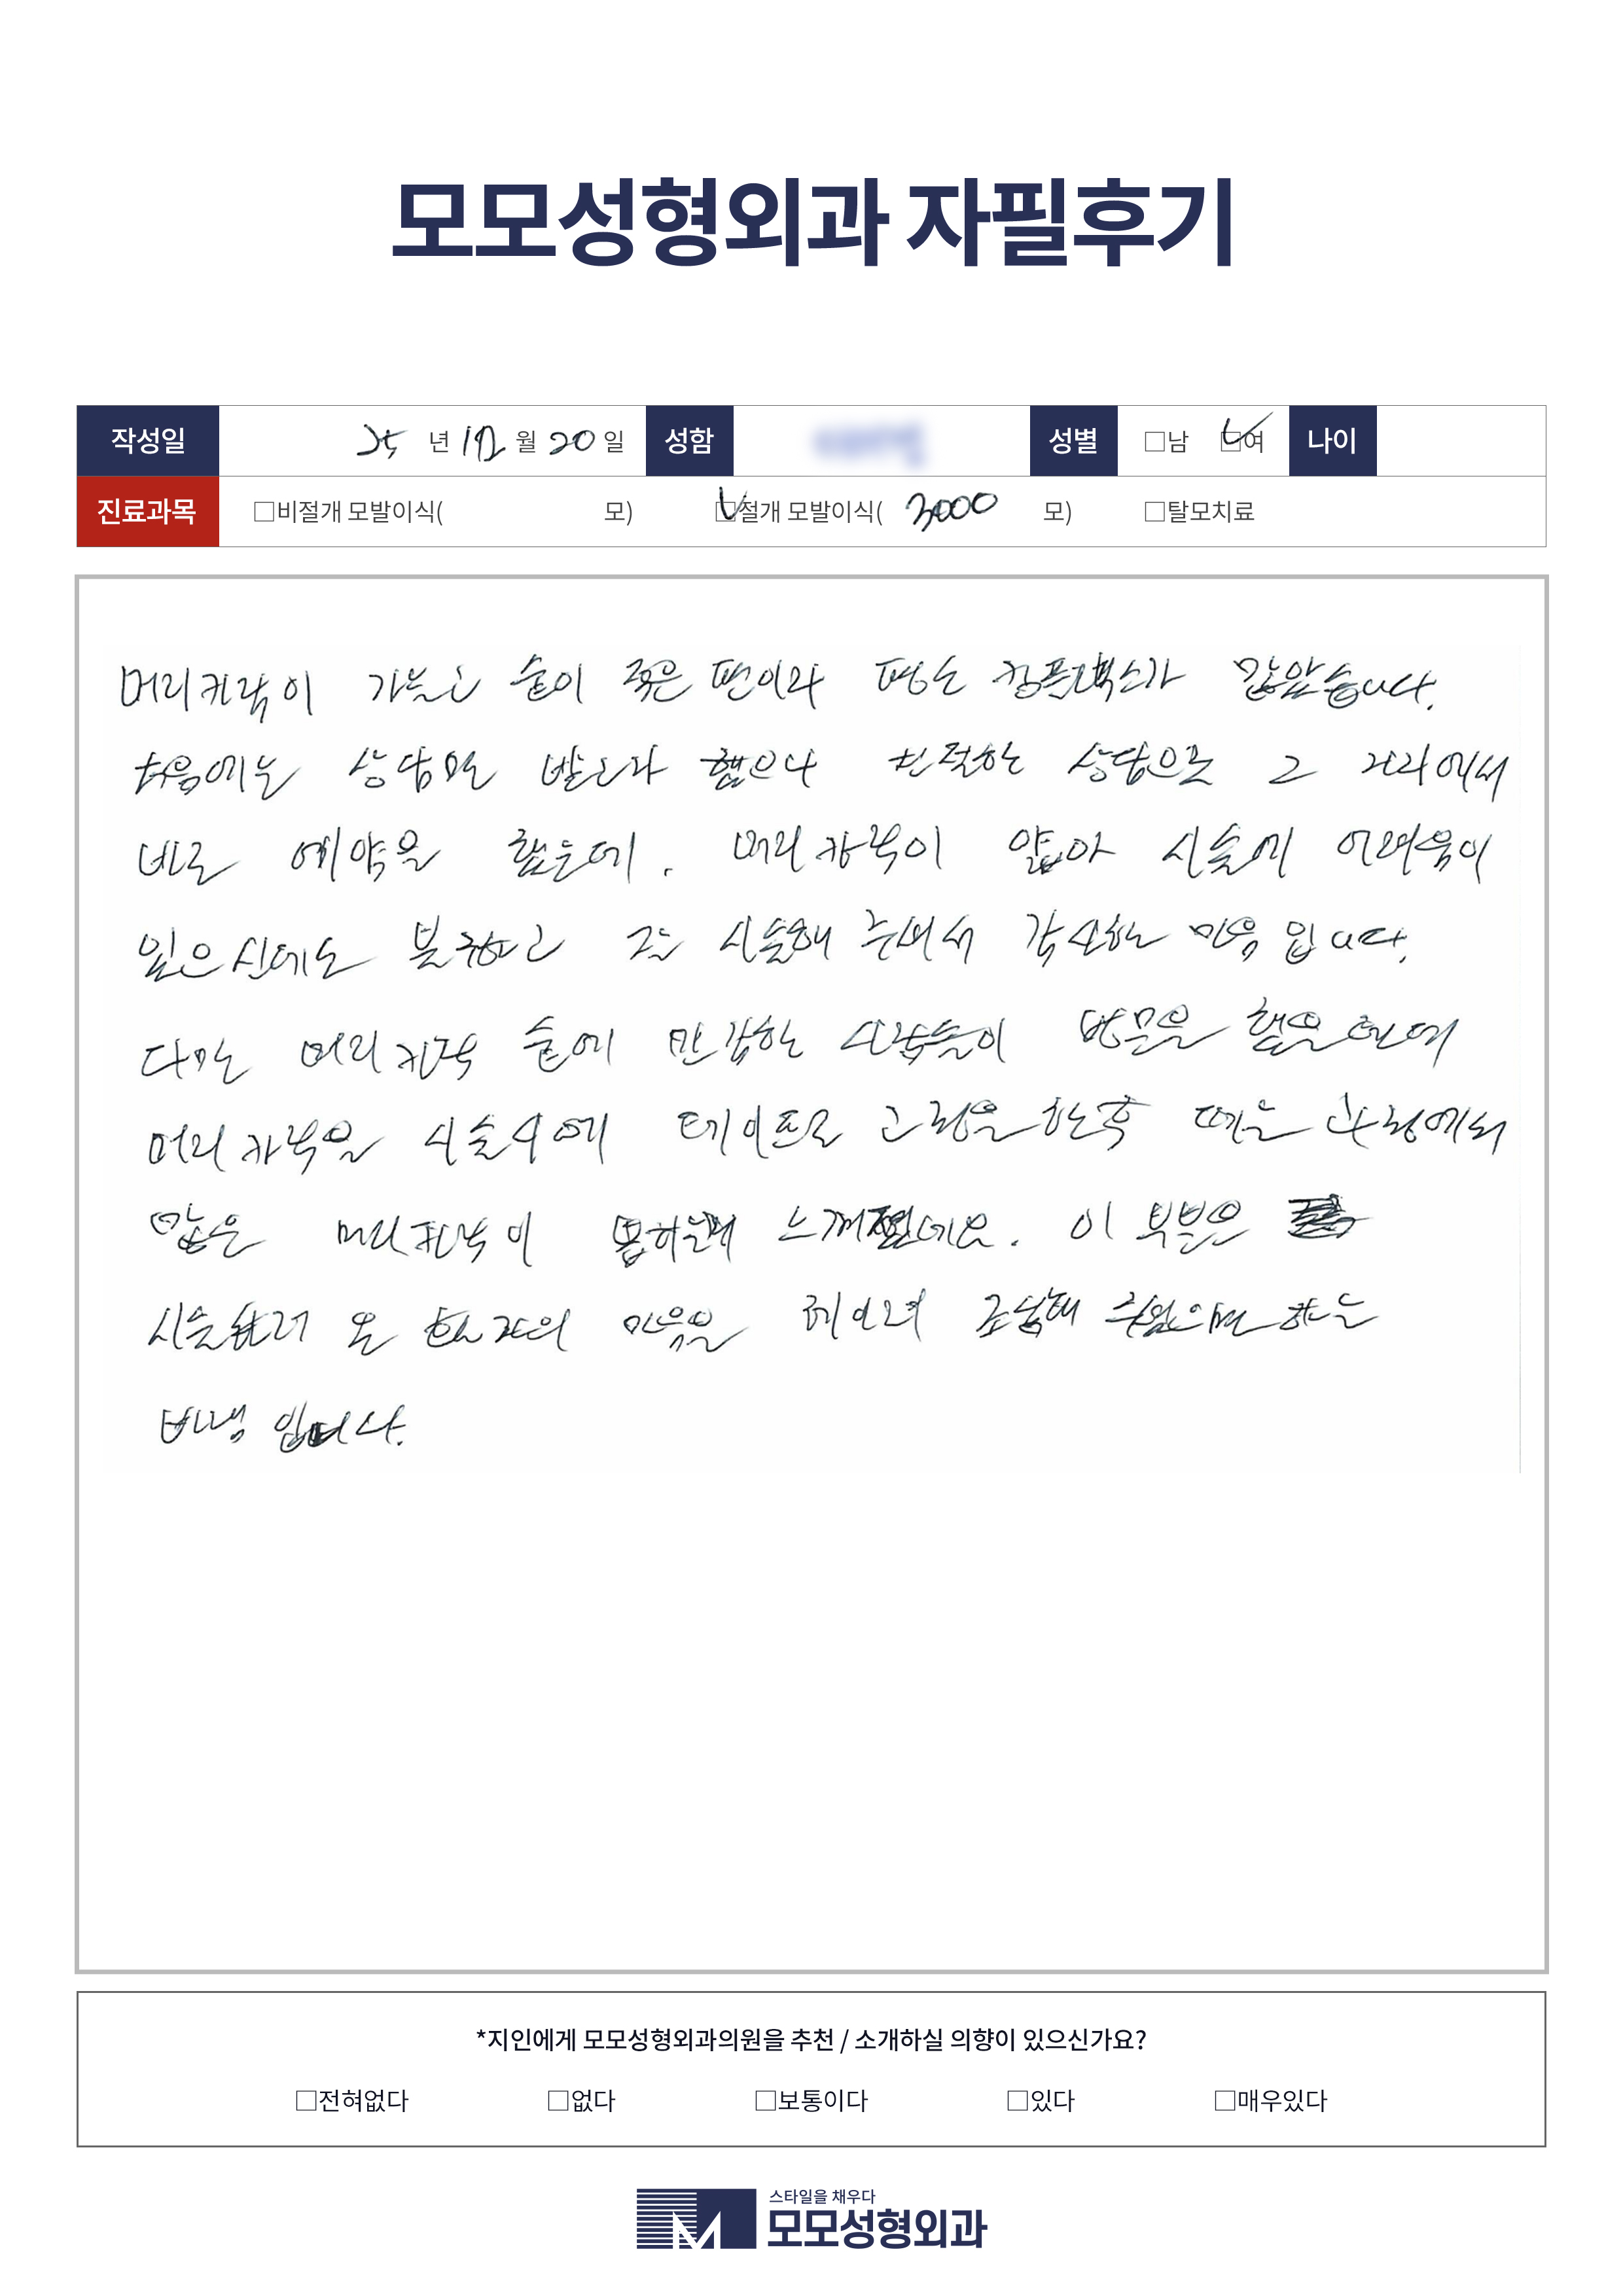 모모성형외과 자필후기
작성일 25 년 12 월 20 일 성함 성별 □남 □여 나이
진료과목 □비절개 모발이식( 모) □절개 모발이식( 3000 모) □탈모치료
머리카락이 가늘고 숱이 적은 편이라 평소 컴플렉스가 많았습니다.
처음에는 상담만 받으러 했으나 친절한 상담으로 그 자리에서
바로 예약을 했는데. 머리카락이 얇아 시술에 어려움이
있으신데도 불구하고 시술해 주셔서 감사한 마음 입니다.
다만 머리카락 숱에 민감한 사람들이 방문을 했을텐데
머리카락을 시술시에 테이프로 고정을 한 후 떼는 과정에서
많은 머리카락이 뽑히는게 느껴졌데요. 이 부분은
시술하러 온 환자의 마음을 헤아려 조심해 주셨으면 하는
바램 입니다.
*지인에게 모모성형외과의원을 추천 / 소개하실 의향이 있으신가요?
□전혀없다 □없다 □보통이다 □있다 □매우있다
스타일을 채우다
모모성형외과